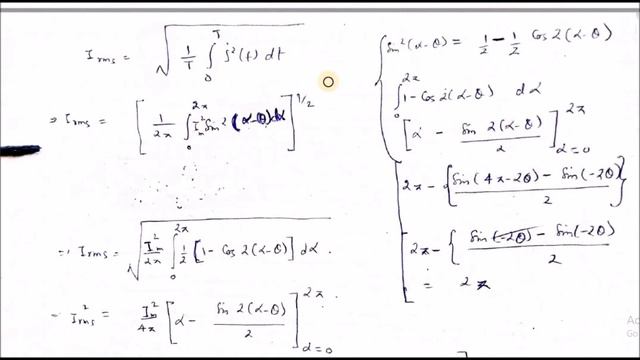 I rms = √ 1/T ∫₀ᵀ i²(t) dt
⇒ I rms = [ 1/2π ∫₀^2π I²m Sin² (α-θ)dα ]^1/2
∴ I rms = √ I²m/2π ∫₀^2π 1/2 [1 - Cos 2(α-θ)] dα .
∴ I²rms = I²m/4π [ α - Sin 2(α-θ)/2 ]^2π α=0
Sin²(α-θ) = 1/2 - 1/2 Cos 2(α-θ)
∫₀^2π 1 - Cos 2(α-θ) dα
[ α - Sin 2(α-θ)/2 ]^2π α=0
2π - { Sin(4π-2θ) - Sin(-2θ)/2 }
2π - { Sin(-2θ) - Sin(-2θ)/2
= 2π